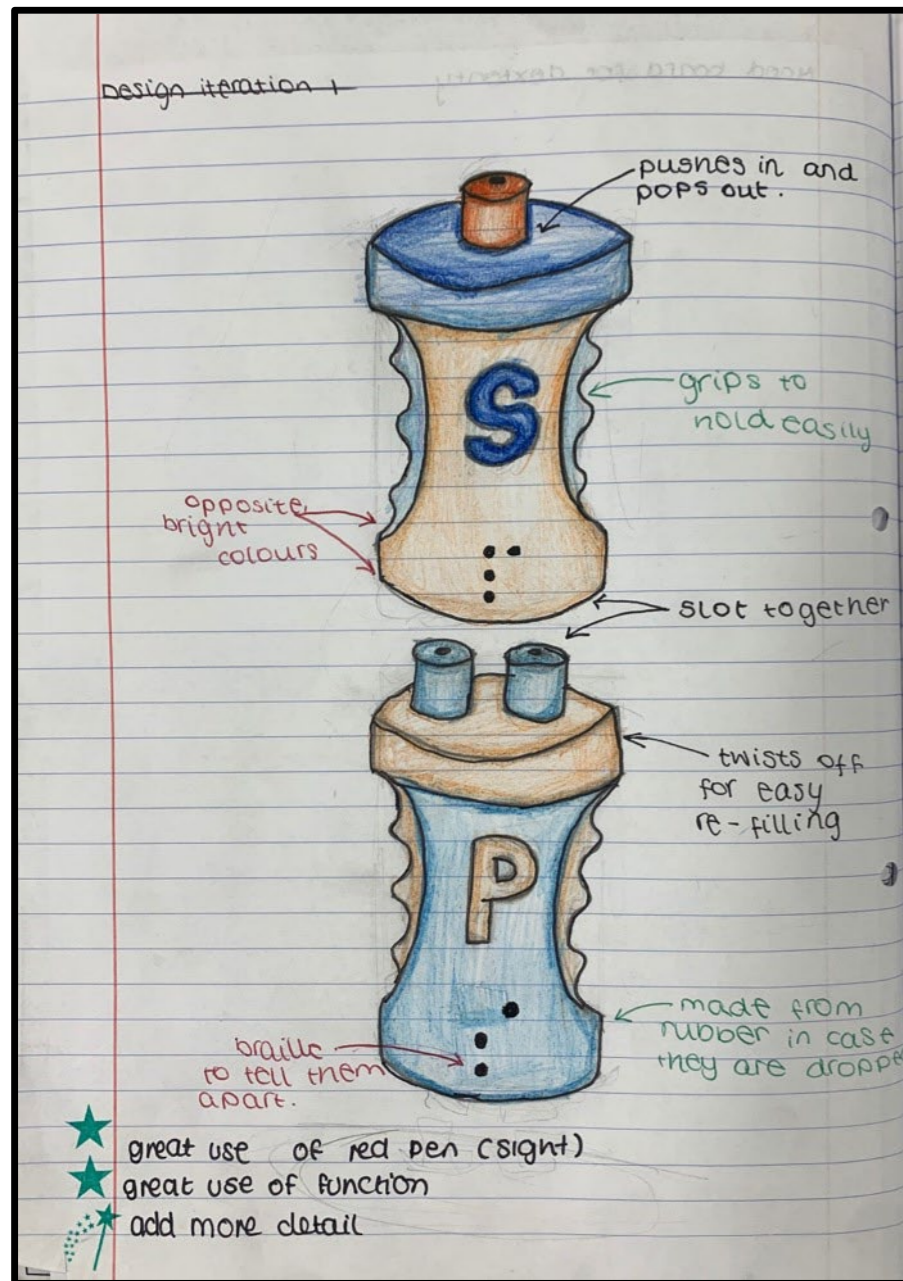 Design iteration 1
pushes in and
pops out.
S
grips to
hold easily
opposite,
bright
colours
slot together
twists off
for easy
re-filling
P
made from
rubber in case
they are droppe
braille
to tell them
apart.
great use of red pen (sight)
great use of function
add more detail